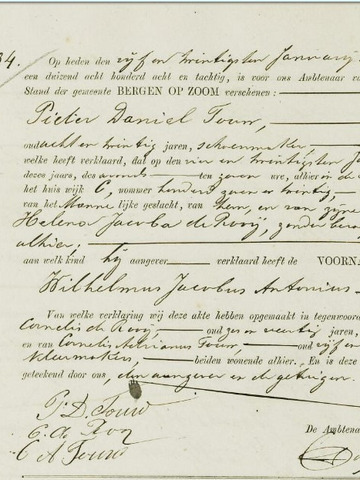 34. Op heden den vijf en twintigsten January
een duizend acht honderd acht en tachtig, is voor ons Ambtenaar va
Stand der gemeente BERGEN OP ZOOM verschenen:
Pieter Daniel Touw,
oud acht en twintig jaren, schoenmaker,
welke heeft verklaard, dat op den vier en twintigsten Ja
dezes jaars, des avonds ten zeven ure, alhier in de
het huis wijk C, nommer honderd zeven en twintig,
van het Manne lijke geslacht, van hem, en van zijne
Helena Jacoba de Rooij, zonder bero
alhier.
aan welk kind hij aangever verklaard heeft de VOORNA
Wilhelmus Jacobus Antonius
Van welke verklaring wij deze akte hebben opgemaakt in tegenwoor
Cornelis de Rooij, oud zes en veertig jaren,
en van Cornelis Adrianus Touw oud vijf en
kleermakers, beiden wonende alhier. En is deze
geteekend door ons, den aangever en de getuigen.
P. D. Touw
C. de Rooy
C A Touw
De Ambtena